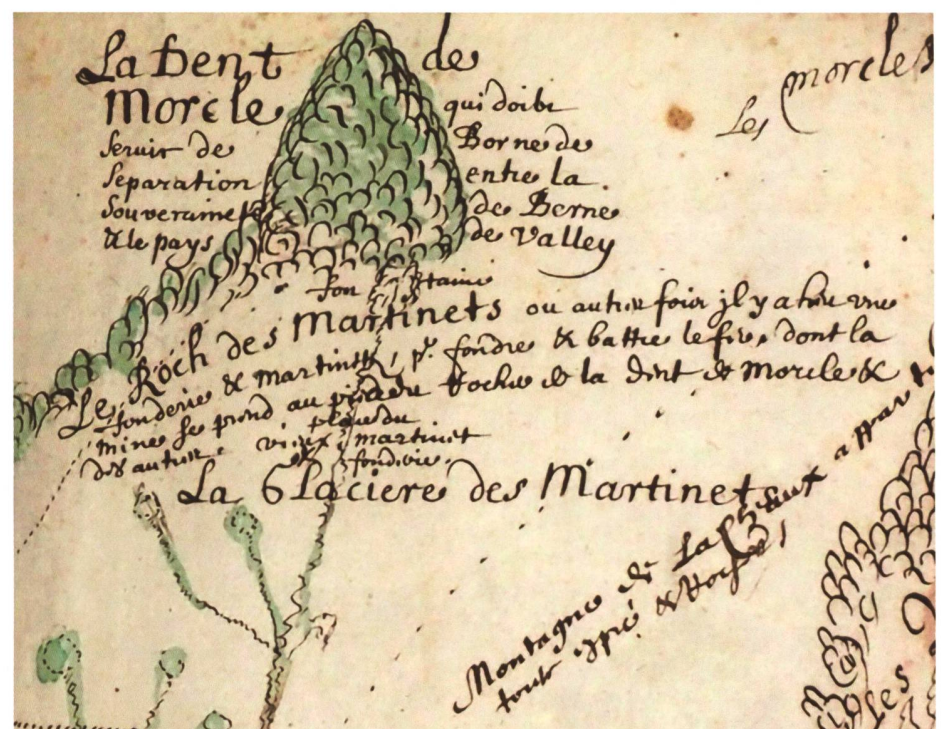 La Dent de
Morcle qui doibt
servir de Borne de
separation entre la
souveraineté de Berne
& le pays de Valley
Les morcles
fontaine
Le Roch des Martinets ou autrefoix jl y a heu une
fonderie & martinets pr. fondre & battre le fer, dont la
mine se prend au pied du Roche de la dent de Morcle &
des autres
place du
vieux martinet
& fonderie.
La Glaciere des Martinets
Montagne de La
tout & Roches